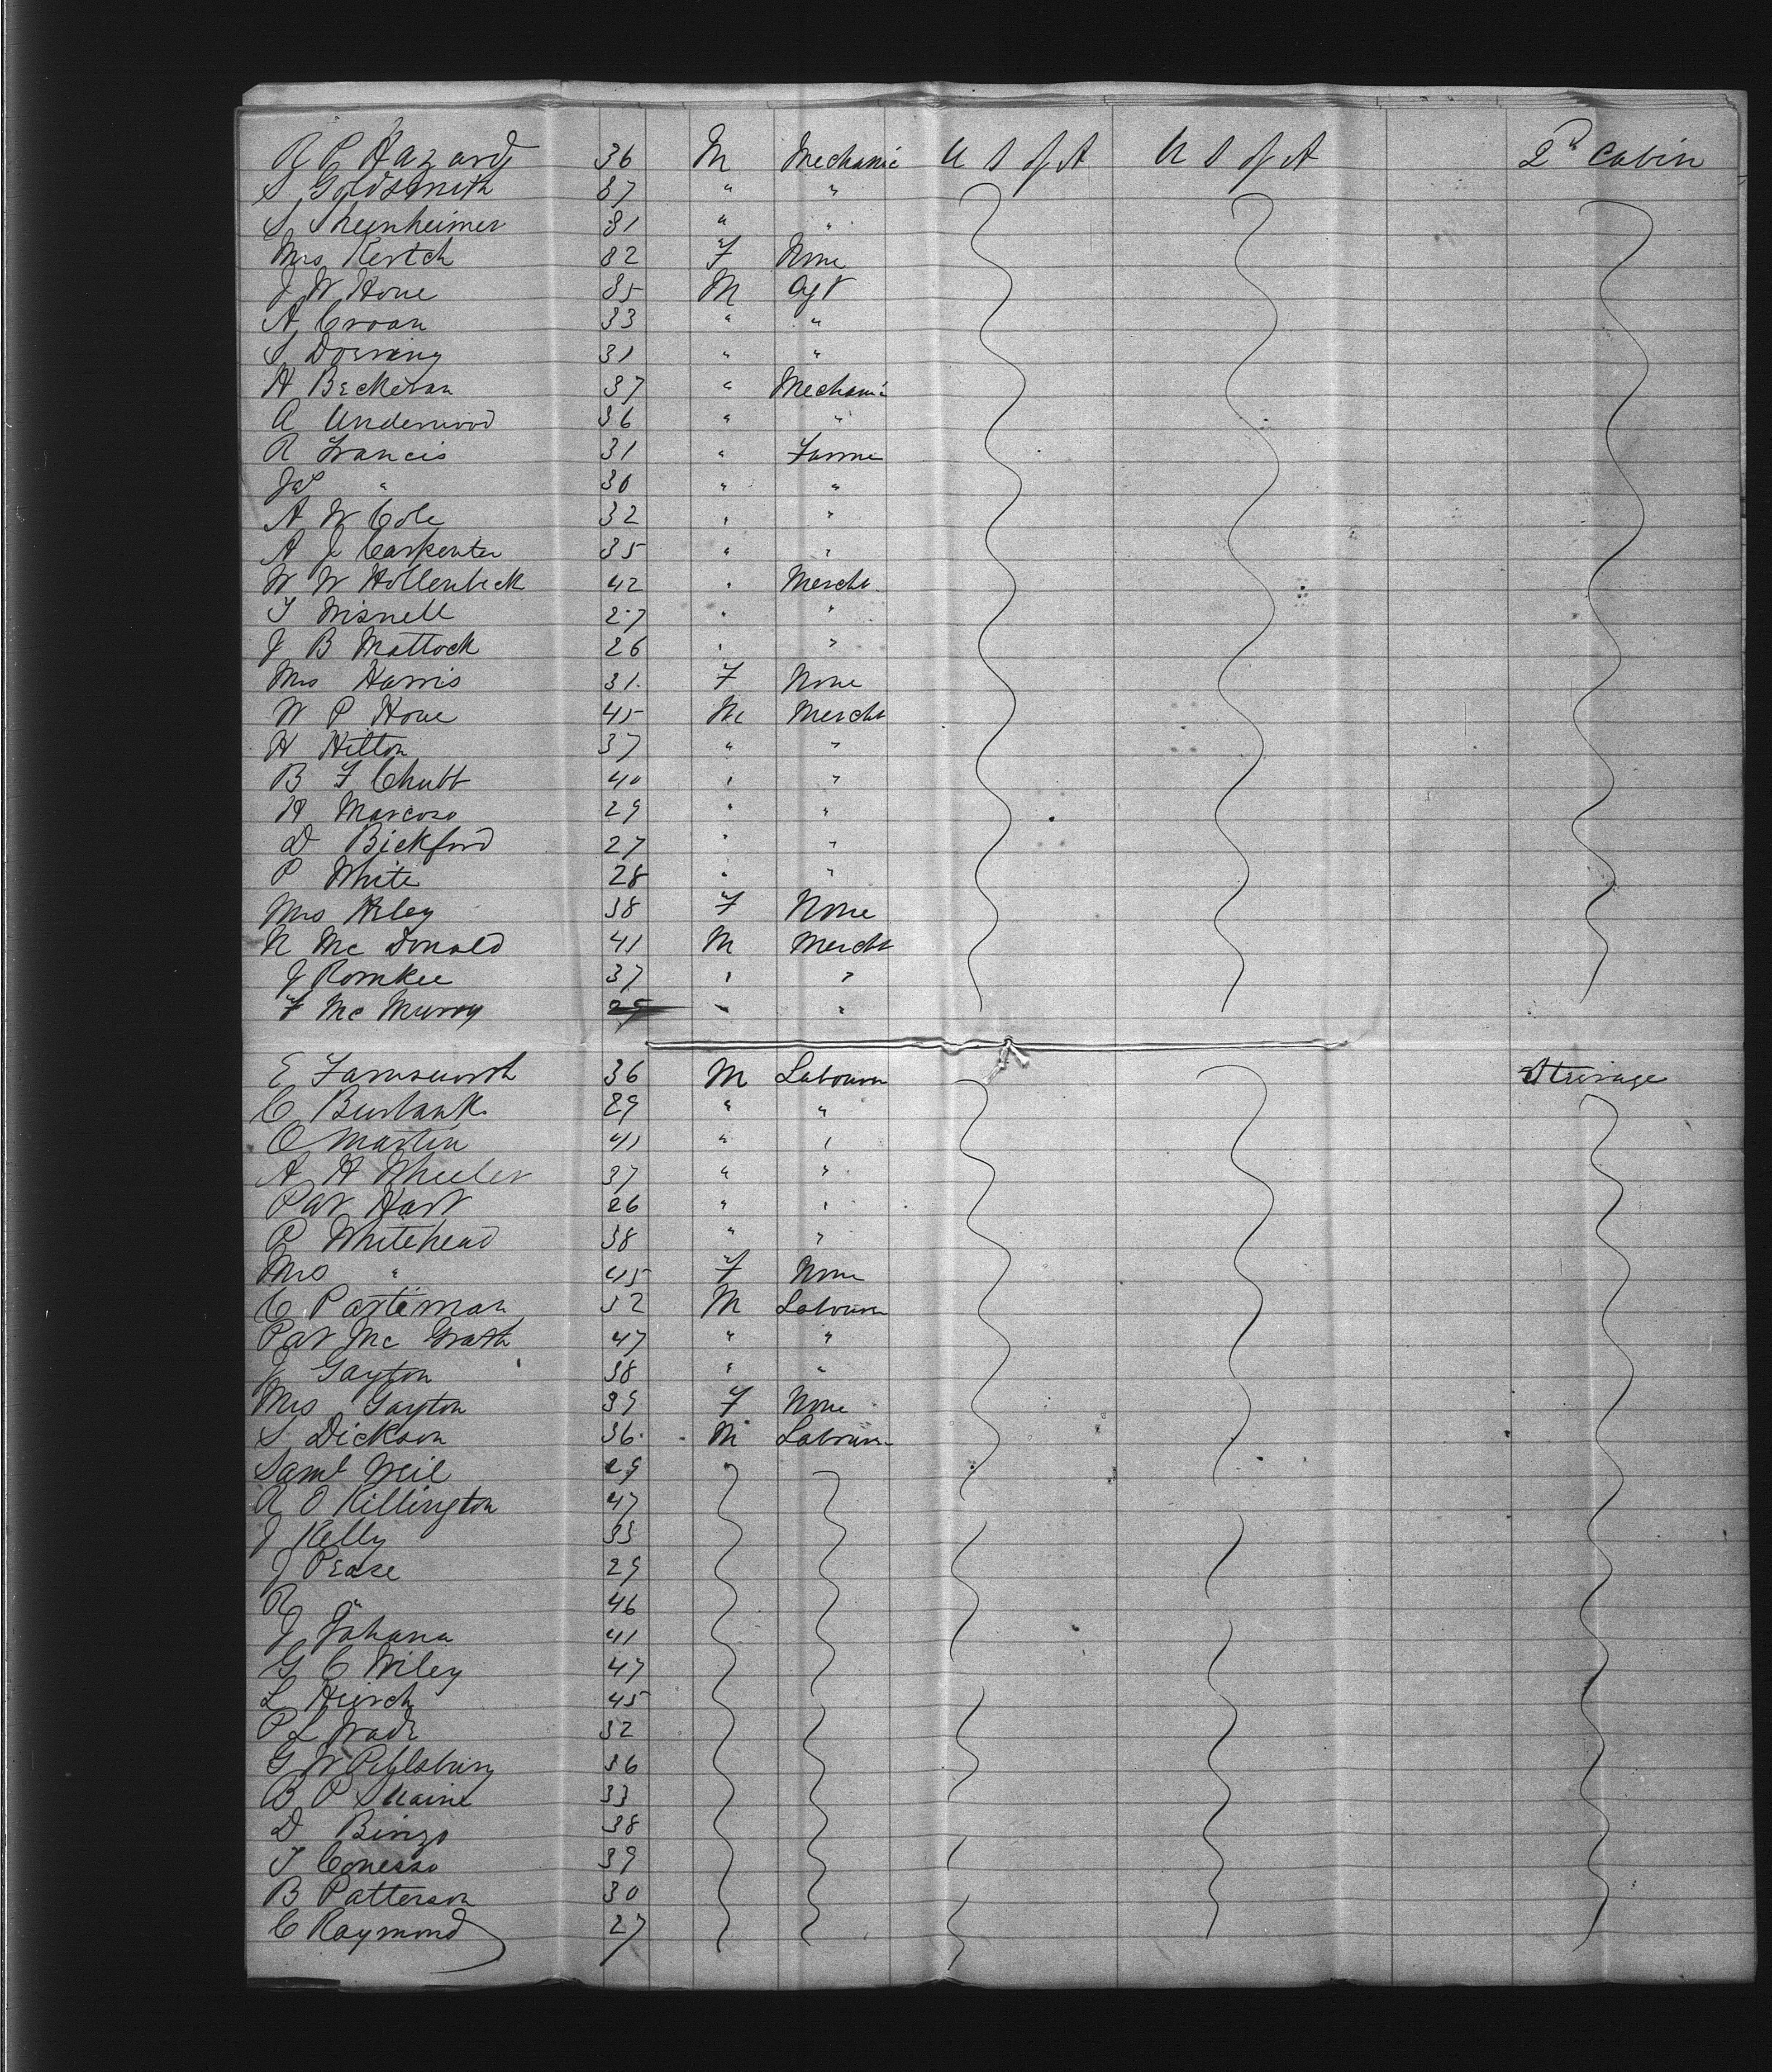 R P Hazard 36 M Mechanic U S of A U S of A 2nd Cabin
S Goldsmith 37 " "
S Sheenheimer 31 " "
Mrs Kertch 32 F None
J W Hove 35 M Agt
A Croan 33 " "
S Dorring 31 " "
H Beckeran 37 " Mechani
A Underwood 36 " "
R Francis 31 " Farme
" 30 " "
A W Cole 32 " "
A J Carpenter 35 " "
W W Hollenbeck 42 " Mercht
T Wisnell 27 " "
J B Mattock 26 " "
Mrs Harris 31 F None
W P Hove 45 M Mercht
H Hilton 37 " "
B F Chubb 40 " "
H Marcoso 29 " "
D Bickford 27 " "
P White 28 " "
Mrs Riley 38 F None
N Mc Donald 41 M Mercht
J Romkee 37 " "
F Mc Murry " "
E Farnsworth 36 M Labourer Steerage
C Burbank 29 " "
O Martin 41 " "
A H Wheeler 37 " "
Pat Hart 26 " "
P Whitehead 38 " "
Mrs " 45 F None
C Parteman 32 M Labourer
Pat Mc Grath 47 " "
J Gayton 38 " "
Mrs Gayton 39 F None
S Dickson 36 M Labourer
Saml Weil 29
R O Killington 47
J Kelly 33
J Pease 29
R " 46
J Johana 41
G C Wiley 47
L Hirsch 45
P L Wade 32
G W Pillsbury 36
B P Maine 33
D Binzo 38
T Conesso 39
B Patterson 30
C Raymond 27